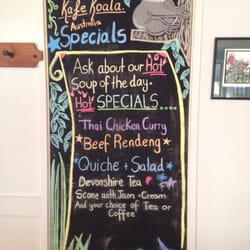 Kafe Koala
Australia
Specials
Ask about our Hot
Soup of the day.
Hot SPECIALS....
Thai Chicken Curry
Beef Rendeng
Quiche + Salad
Devonshire Tea
Scone with Jam + Cream
And your choice of Tea or
Coffee